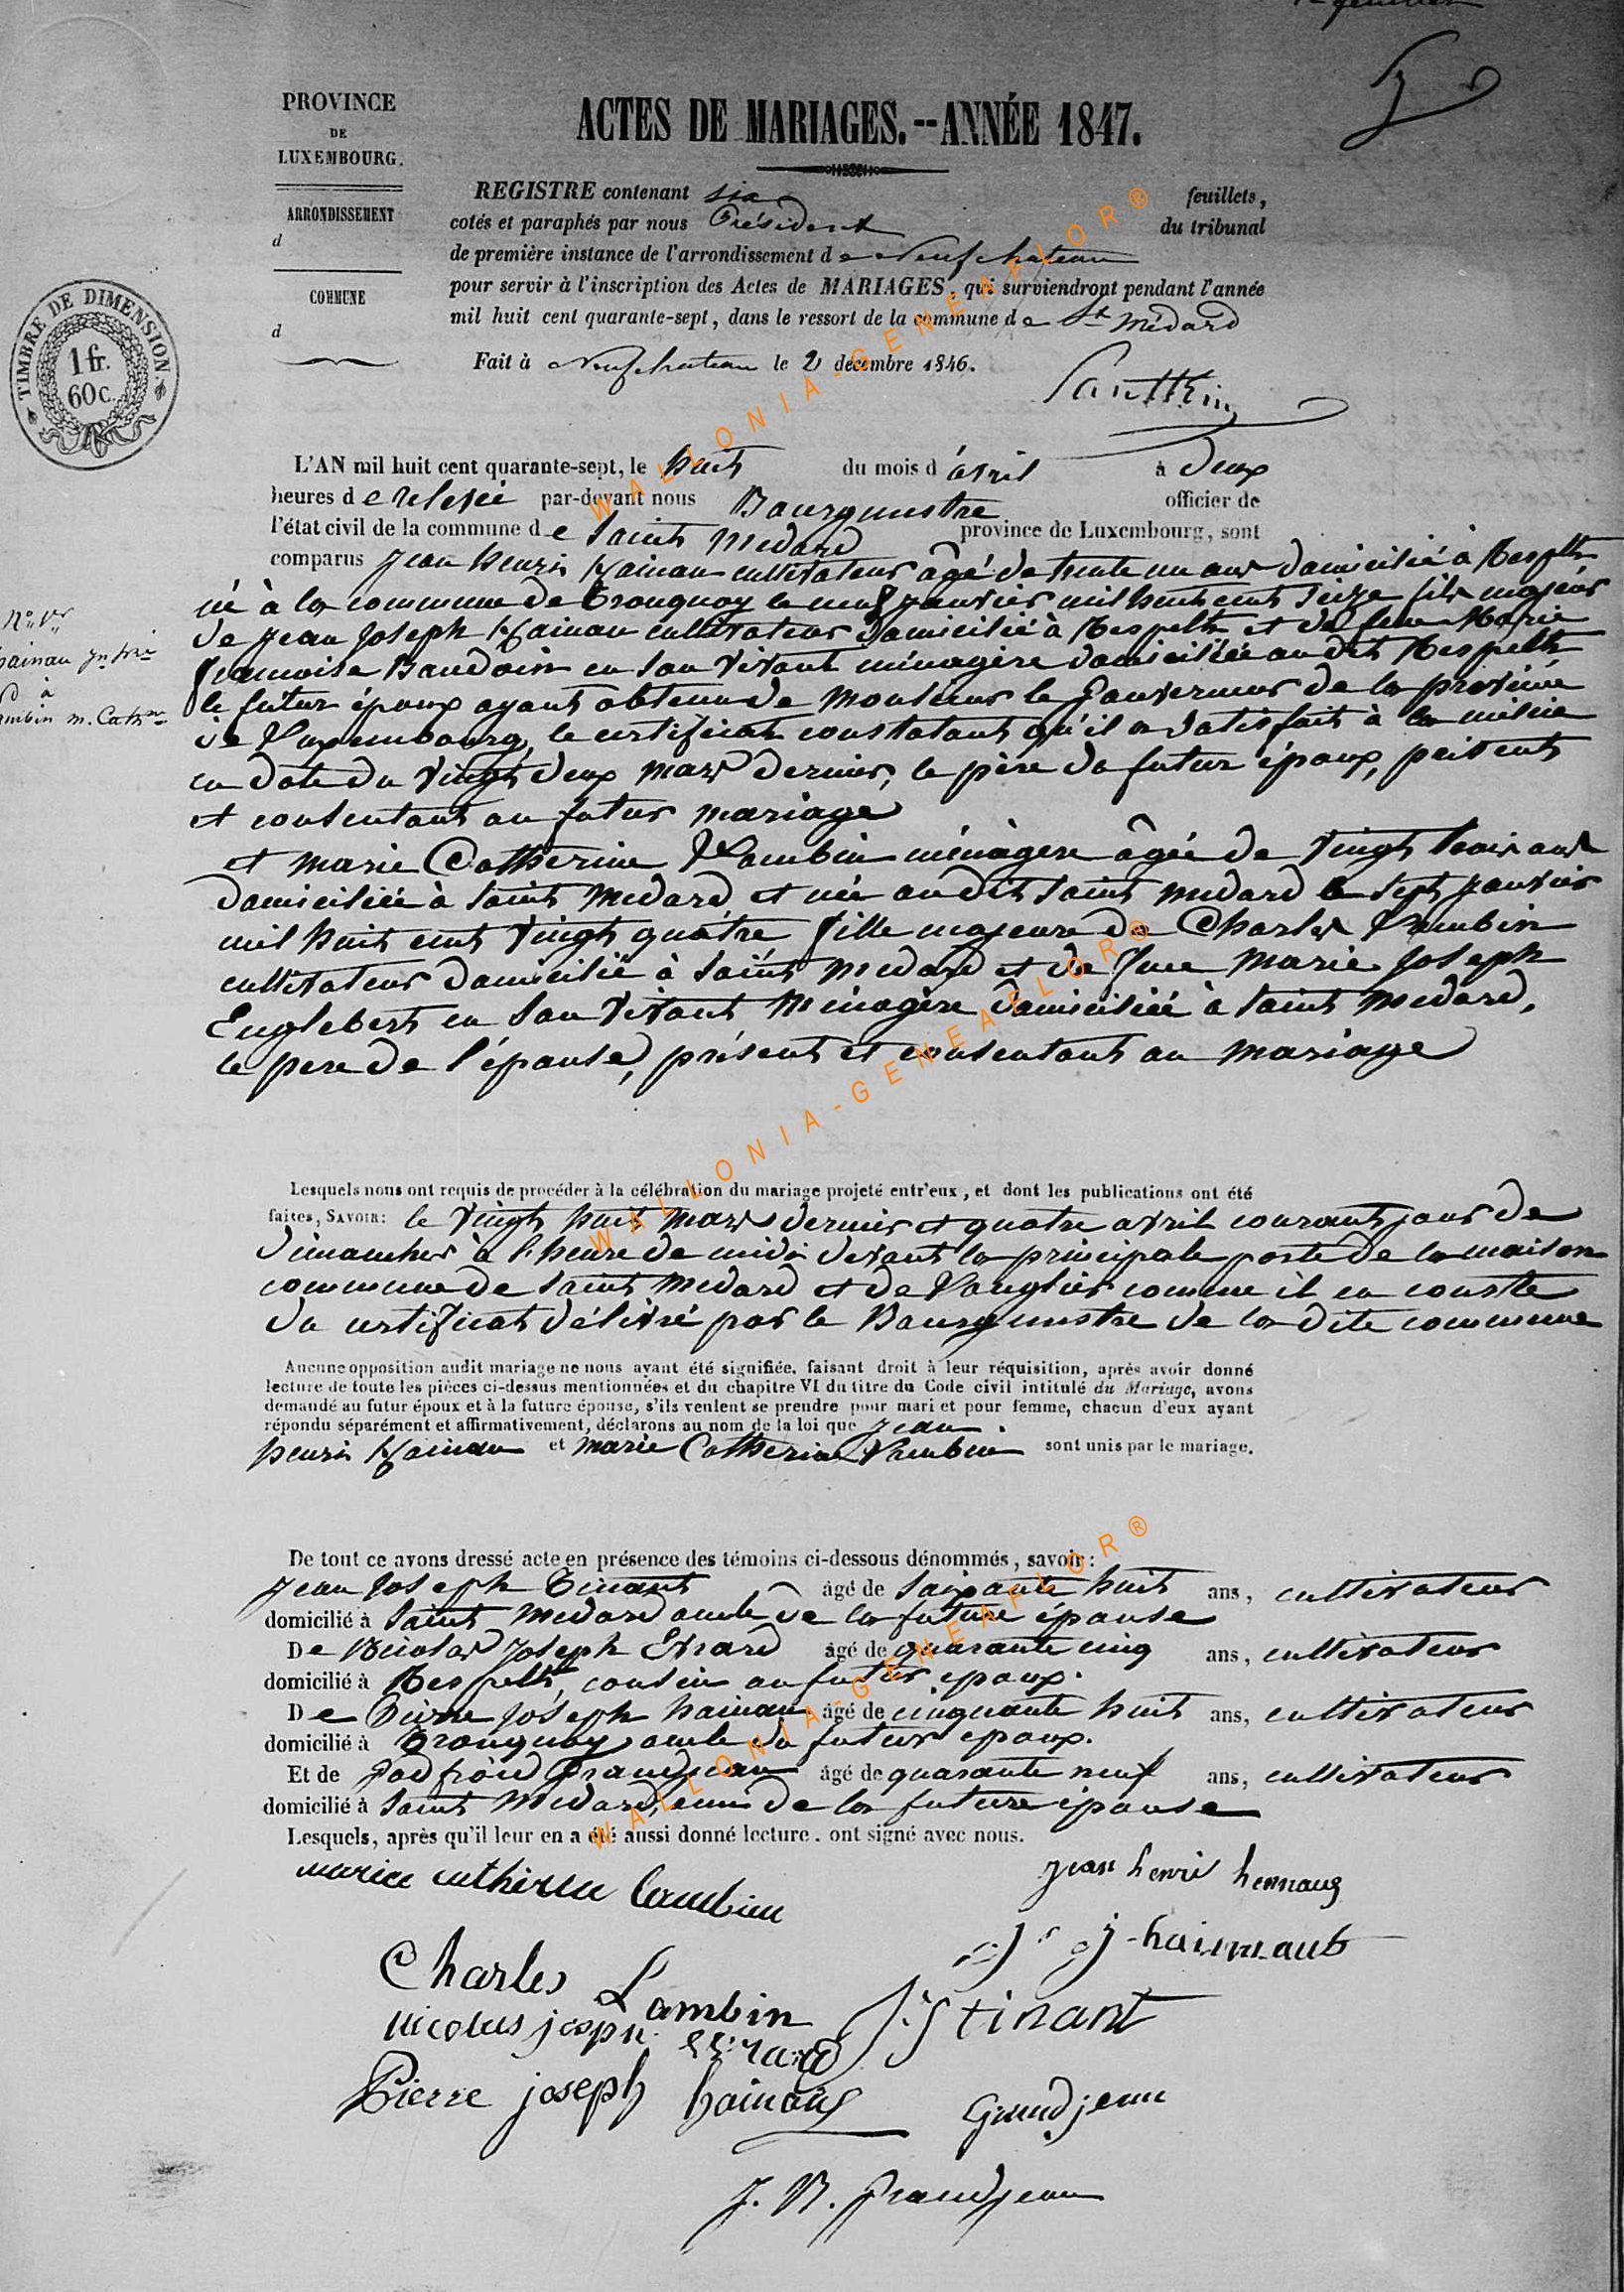 PROVINCE
DE
LUXEMBOURG.
ARRONDISSEMENT
d
COMMUNE
d
TIMBRE DE DIMENSION.
1 fr.
60c.
ACTES DE MARIAGES.--ANNÉE 1847.
REGISTRE contenant six feuillets,
cotés et paraphés par nous Président du tribunal
de première instance de l'arrondissement de Neufchateau
pour servir à l'inscription des Actes de MARIAGES, qui surviendront pendant l'année
mil huit cent quarante-sept, dans le ressort de la commune de St Médard
Fait à Neufchateau le 2 décembre 1846.
L'AN mil huit cent quarante-sept, le huit du mois d'avril à deux
heures de relevée par-devant nous Bourgmestre officier de
l'état civil de la commune de Saint Medard province de Luxembourg, sont
comparus Jean henri hainau cultivateur âgé de trente un ans domicilié à Respelt
né à la commune de Tronquoy le neuf janvier mil huit cent seize fils majeur
de Jean Joseph hainau cultivateur domicilié à Respelt et de feue Marie
françoise Baudoin en son vivant ménagère domiciliée audit Respelt
le futur époux ayant obtenu de Monsieur le Gouverneur de la province
de Luxembourg, le certificat constatant qu'il a satisfait à la milice
en date du vingt deux mars dernier, le père du futur époux, présent
et consentant au futur mariage
et marie Catherine Lambin ménagère âgée de vingt trois ans
domiciliée à saint Medard et née audit saint medard le sept janvier
mil huit cent vingt quatre fille majeure de Charles Lambin
cultivateur domicilié à saint medard et de feue Marie Joseph
Englebert en son vivant Ménagère domiciliée à saint Medard,
le pere de l'épouse, présent et consentant au mariage
N° 1er
hainau Jn hri
à
Lambin m. Cathne
Lesquels nous ont requis de procéder à la célébration du mariage projeté entr'eux, et dont les publications ont été
faites, SAVOIR: le vingt huit mars dernier et quatre avril courant jour de
dimanches à l'heure de midi devant la principale porte de la maison
commune de saint Medard et de Longlier comme il en conste
du certificat délivré par le Bourgmestre de la dite commune
Aucune opposition audit mariage ne nous ayant été signifiée, faisant droit à leur réquisition, après avoir donné
lecture de toute les pièces ci-dessus mentionnées et du chapitre VI du titre du Code civil intitulé du Mariage, avons
demandé au futur époux et à la future épouse, s'ils veulent se prendre pour mari et pour femme, chacun d'eux ayant
répondu séparément et affirmativement, déclarons au nom de la loi que Jean
henri hainau et marie Catherine Lambin sont unis par le mariage.
De tout ce avons dressé acte en présence des témoins ci-dessous dénommés, savoir:
Jean Joseph Tinant âgé de soixante huit ans, cultivateur
domicilié à saint Medard oncle de la future épouse
De Nicolas Joseph Evrard âgé de quarante cinq ans, cultivateur
domicilié à Respelt, cousin au futur epoux.
De Pierre Joseph hainau âgé de cinquante huit ans, cultivateur
domicilié à Tronquoy oncle du futur epoux.
Et de Godfroid Grandjean âgé de quarante neuf ans, cultivateur
domicilié à saint Medard, ami de la future épouse
Lesquels, après qu'il leur en a été aussi donné lecture, ont signé avec nous.
marice catherine lambin jean henri hennaux
j-hainnaut
Charles Lambin
J. J tinant
nicolas joseph evrard
Pierre joseph hainaux Grandjean
J. N. Grandjean
WALLONIA-GENEAFLOR®
WALLONIA-GENEAFLOR®
WALLONIA-GENEAFLOR®